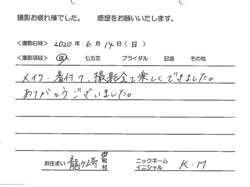 撮影お疲れ様でした。 感想をお願いいたします。
<撮影日時> 2020年 6月 14日(日)
<撮影項目> 成人 七五三 ブライダル 記念 その他
メイク、着付け、撮影全て楽しくできました。
ありがとうございました。
お住まい 龍ヶ崎 市町村 ニックネーム イニシャル K.M